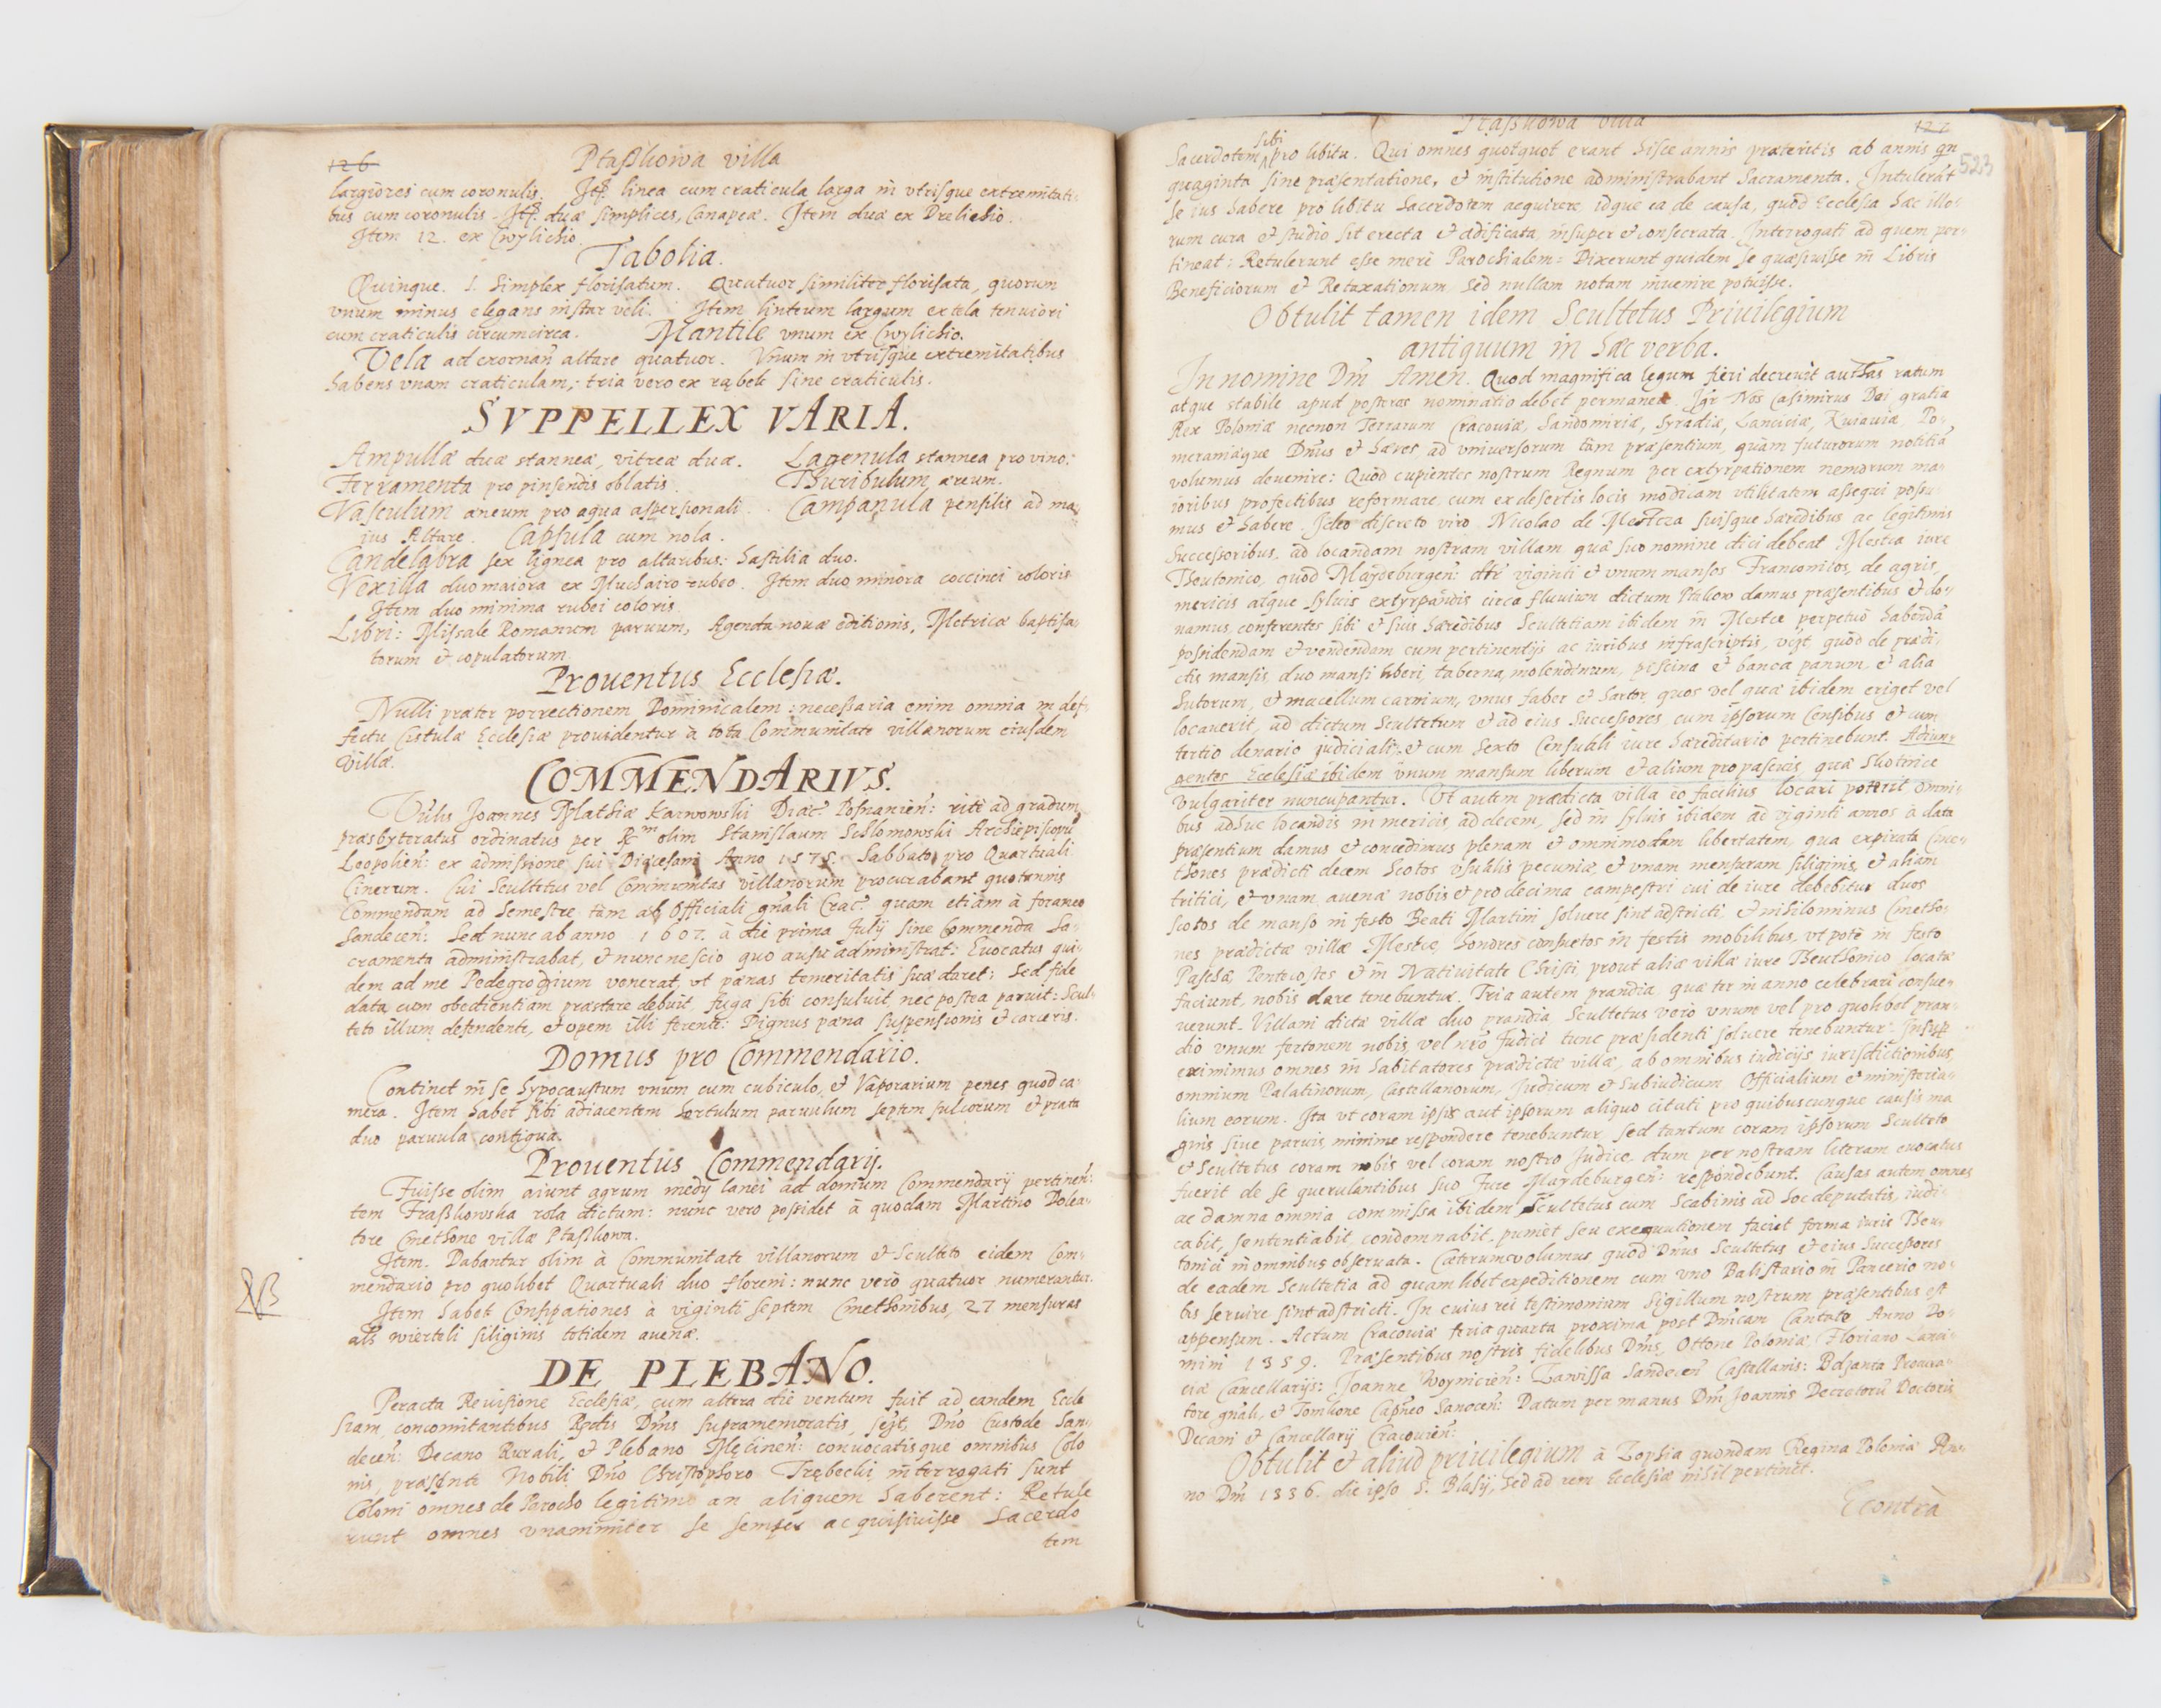 126 Ptaszkowa villa
largiores cum coronulis. Itẽ linea cum craticula larga in utrisque extremitati-
bus cum coronulis. Itẽ. duæ simplices, Canapeæ. Item duæ ex Drelichio.
Item 12. ex Cwylichio.
Tabolia.
Quinque. 1. Simplex florisatum. Quatuor similiter florisata, quorum
vnum minus elegans instar veli. Item linteum largum ex tela tenuiori
cum craticulis circumcirca. Mantile vnum ex Cwylichio.
Vela ad exornañ altare quatuor. Vnum in vtrisque extremitatibus
habens vnam craticulam, tria vero ex rąbek sine craticulis.
SVPPELLEX VARIA.
Ampullæ duæ stanneæ, vitreæ duæ. Lagenula stannea pro vino.
Ferramenta pro pinsendis oblatis. Thuribulum æreum.
Vasculum æneum pro aqua aspersionali. Campanula pensilis ad ma-
ius Altare. Capsula cum nola.
Candelabra sex lignea pro altaribus: hastilia duo.
Vexilla duo maiora ex Muchairo rubeo. Item duo minora coccinei coloris
Item duo minima rubei coloris.
Libri: Missale Romanum paruum, Agenda nouæ editionis, Metricæ baptisa-
torum et copulatorum.
Prouentus Ecclesiæ.
Nulli præter porrectionem Dominicalem: necessaria enim omnia in def-
fectu Cistulæ Ecclesiæ prouidentur à tota Communitate villanorum eiusdem
Villæ.
COMMENDARIVS.
Joannes Mathiæ Karwowski Diæc: Posnanień: ritè ad gradum
præsbyteratus ordinatus per Rm olim Stanislaum Schlomowski Archiepiscopũ
Leopolień: ex admissione sui Diæcesani Anno 1575. Sabbato pro Quartuali
Cinerum. Cui Scultetus vel Communitas villanorum procurabant quotannis
Commendam ad Semestre tàm ab Officiali gñali Crac: quam etiàm à foraneo
Sandeceń: Sed nunc ab anno 1607. à die prima July sine Commenda Sa-
cramenta administrabat, et nunc nescio quo ausu administrat: Euocatus qui-
dem ad me Podegrodzium venerat, vt pænas temeritatis suæ daret: Sed fide
data cum obedientiam præstare debuit, fuga sibi consuluit, nec postea paruit: Scul-
teto illum defendente, et opem illi ferente: Dignus pæna suspensionis et carceris.
Domus pro Commendario.
Continet in se hypocaustum vnum cum cubiculo, et Vaporarium penes quod ca-
mera. Item habet sibi adiacentem hortulum paruulum septem sulcorum et prata
duo paruula contigua.
Prouentus Commendarij.
Fuisse olim aiunt agrum medij lanei ad domum Commendarij pertinen:
tem Fraszkowska rola dictum: nunc vero possidet à quodam Martino Dolea-
tore Cmethone villæ Ptaszkowa.
Item. Dabantur olim à Communitate villanorum et Sculteto eidem Com-
mendario pro quolibet Quartuali duo floreni: nunc verò quatuor numerantur.
NB
Item habet Consipationes à viginti septem Cmethonibus, 27 mensuras
als wierteli siliginis totidem auenæ.
DE PLEBANO.
Peracta Reuisione Ecclesiæ, cum altera die ventum fuit ad eandem Eccle
siam, concomitantibus Rpdis Dñis supramemoratis, sczt, Dño Custode San-
deceń: Decano Rurali, et Plebano Męcineń: conuocatisque omnibus Colo
nis, præsente Nobili Dño Christophoro Trębecki, interrogati sunt
Coloni omnes de Parocho legitimo an aliquem haberent: Retule
runt omnes vnanimiter se semper acquisiuisse Sacerdo
tem
Ptaszkowa villa 127
523
sibi
Sacerdotem pro libitu. Qui omnes quotquot erant hisce annis præteritis ab annis qn
quaginta sine præsentatione, et institutione administrabant Sacramenta. Intulerãt
se ius habere pro libitu Sacerdotem acquirere, idque ea de causa, quòd Ecclesia hæc illo-
rum cura et studio sit erecta et ædificata, insuper et consecrata. Interrogati ad quem per-
tineat: Retulerunt esse merè Parochialem: Dixerunt quidem se quæsiuisse in Libris
Beneficiorum et Retaxationum, sed nullam notam inuenire potuisse.
Obtulit tamen idem Scultetus Priuilegium
antiquum in hæc verba.
In nomine Dñi Amen. Quod magnifica legum fieri decreuit authas ratum
atque stabile apud posteros nominatio debet permanere. Igr Nos Casimirus Dei gratia
Rex Poloniæ necnon Terrarum Cracouiæ, Sandomiriæ, Syradiæ, Lanciciæ, Kuiauiæ, Po-
meraniæque Dñus et hæres, ad vniuersorum tàm præsentium, quàm futurorum notitiã
volumus deuenire: Quòd cupientes nostrum Regnum per extyrpationem nemorum ma-
ioribus profectibus reformare, cum ex desertis locis modicam vtilitatem assequi possu-
mus et habere. Ideo discreto viro Nicolao de Mestcza suisque hæredibus ac legitimis
Successoribus, ad locandam nostram villam quæ suo nomine dici debeat Mestcæ iure
Theutonico, quod Maydeburgeń: dtr viginti et vnum mansos Franconicos, de agris,
mericis atque syluis extyrpandis circa fluuium dictum Ptaskow damus præsentibus et do-
namus, conferentes sibi et suis hæredibus Scultetiam ibidem in Mestce perpetuò habendã
possidendam et vendendam cum pertinentijs ac iuribus infrascriptis, vczt, quòd de prædi-
ctis mansis, duo mansi liberi, taberna, molendinum, piscina et banca panum, et alia
Sutorum, et macellum carnium, vnus faber et Sartor, quos vel quæ ibidem eriget vel
locauerit, ad dictum Scultetum et ad eius Successores, cum ipsorum Censibus et cum
tertio denario judiciali, et cum Sexto Censuali iure hæreditario pertinebunt. Adiun-
gentes Ecclesiæ ibidem vnum mansum liberum et alium pro pascuis, quæ Skotnice
vulgariter nuncupantur. Vt autem prædicta villa eo facilius locari poterit omni-
bus adhuc locandis in mericis, ad decem, sed in syluis ibidem ad viginti annos à data
præsentium damus et concedimus plenam et omnimodam libertatem, qua expirata Cme-
thones prædicti decem Scotos vsualis pecuniæ, et vnam mensuram siliginis, et aliam
tritici, et vnam auenæ nobis et pro decima campestri cui de iure debebitur duos
scotos de manso in festo Beati Martini soluere sint adstricti, et nihilominus Cmetho-
nes prædictæ villæ Mestce, honores consuetos in festis mobilibus, vt potè in festo
Paschæ, Pentecostes et in Natiuitate Christi, prout aliæ villæ iure Theuthonico locatæ
faciunt, nobis dare tenebuntur. Tria autem prandia, quæ ter in anno celebrari consue-
uerunt. Villani dictæ villæ duo prandia Scultetus verò vnum vel pro quolibet pran-
dio vnum fertonem nobis, vel nro Judici tunc præsidenti soluere tenebuntur. Insup
eximimus omnes inhabitatores prædictæ villæ, ab omnibus iudicijs iurisdictionibus
omnium Palatinorum, Castellanorum, Judicum et Subiudicum Officialium et ministeria-
lium eorum. Ita vt coram ipsis aut ipsorum aliquo citati pro quibuscunque causis ma
gnis siue paruis, minime respondere tenebuntur, sed tantum coram ipsorum Sculteto
et Scultetus coram nobis vel coram nostro Judice, dum per nostram literam euocatus
fuerit de se querulantibus suo Jure Maydeburgeń: respondebunt. Causas autem omnes
ac damna omnia commissa ibidem Scultetus cum Scabinis ad hoc deputatis, iudi-
cabit, sententiabit, condemnabit, puniet seu exequutionem faciet forma iuris Theu-
tonici in omnibus obseruata. Cæterum volumus quòd Dñus Scultetus et eius Successores
de eadem Scultetia ad quamlibet expeditionem cum vno Balistario in Pancerio no-
bis seruire sint adstricti. In cuius rei testimonium Sigillum nostrum præsentibus est
appensum. Actum Cracouiæ feria quarta proxima post Dñicam Cantate, Anno Do-
mini 1359. Præsentibus nostris fidelibus Dñis, Ottone Poloniæ, Floriano Lanci-
ciæ Cancellarijs: Joanne Woynicień: Zawissa Sandeceń Castellanis: Bdzanta Procura-
tore gñali, et Tomkone Capñeo Sanoceń: Datum per manus Dñi Joannis Decretorũ Doctoris
Decani et Cancellarij Cracouień:
Obtulit et aliud priuilegium à Zophia quondam Regina Poloniæ An-
no Dñi 1336. die ipso S. Blasij, sed ad rem Ecclesiæ nihil pertinet.
Econtrà